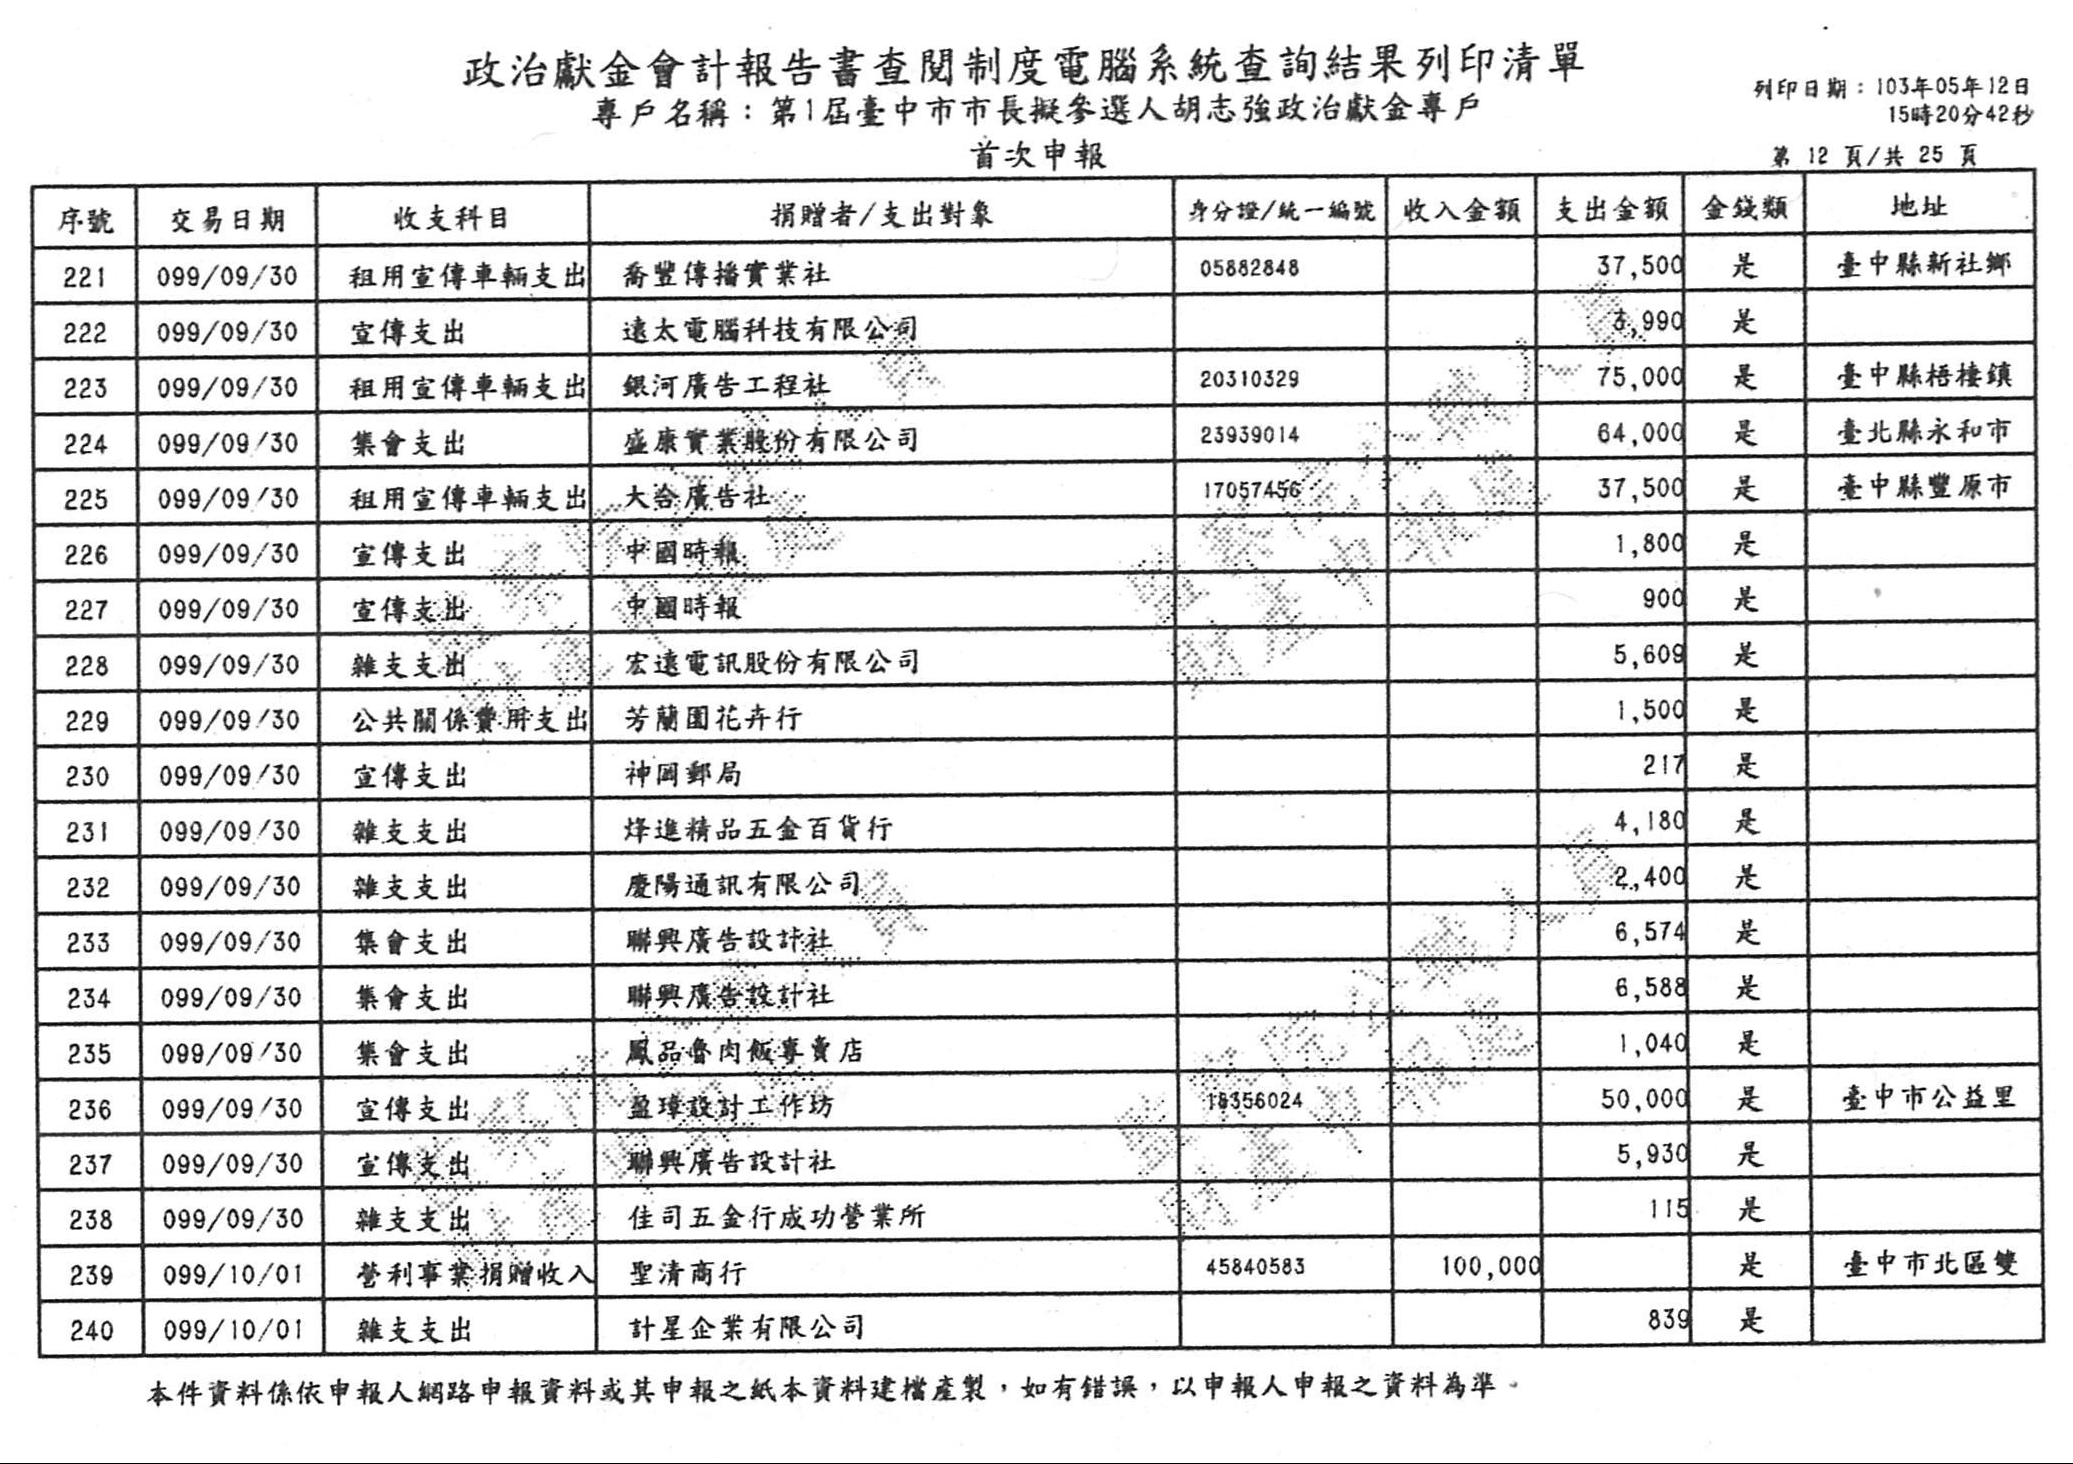 政治獻金會計報告書查閱制度電腦系統查詢結果列印清單
專戶名稱：第1屆臺中市市長擬參選人胡志強政治獻金專戶
列印日期：103年05年12日
15時20分42秒
首次申報
第 12 頁/共 25 頁
序號 交易日期 收支科目 捐贈者/支出對象 身分證/統一編號 收入金額 支出金額 金錢類 地址
221 099/09/30 租用宣傳車輛支出 喬豐傳播實業社 05882848 37,500 是 臺中縣新社鄉
222 099/09/30 宣傳支出 遠太電腦科技有限公司 3,990 是
223 099/09/30 租用宣傳車輛支出 銀河廣告工程社 20310329 75,000 是 臺中縣梧棲鎮
224 099/09/30 集會支出 盛康實業股份有限公司 23939014 64,000 是 臺北縣永和市
225 099/09/30 租用宣傳車輛支出 大合廣告社 17057456 37,500 是 臺中縣豐原市
226 099/09/30 宣傳支出 中國時報 1,800 是
227 099/09/30 宣傳支出 中國時報 900 是
228 099/09/30 雜支支出 宏遠電訊股份有限公司 5,609 是
229 099/09/30 公共關係費用支出 芳蘭園花卉行 1,500 是
230 099/09/30 宣傳支出 神岡郵局 217 是
231 099/09/30 雜支支出 烽進精品五金百貨行 4,180 是
232 099/09/30 雜支支出 慶陽通訊有限公司 2,400 是
233 099/09/30 集會支出 聯興廣告設計社 6,574 是
234 099/09/30 集會支出 聯興廣告設計社 6,588 是
235 099/09/30 集會支出 鳳品魯肉飯專賣店 1,040 是
236 099/09/30 宣傳支出 盈璋設計工作坊 18356024 50,000 是 臺中市公益里
237 099/09/30 宣傳支出 聯興廣告設計社 5,930 是
238 099/09/30 雜支支出 佳司五金行成功營業所 115 是
239 099/10/01 營利事業捐贈收入 聖清商行 45840583 100,000 是 臺中市北區雙
240 099/10/01 雜支支出 計星企業有限公司 839 是
本件資料係依申報人網路申報資料或其申報之紙本資料建檔產製，如有錯誤，以申報人申報之資料為準。